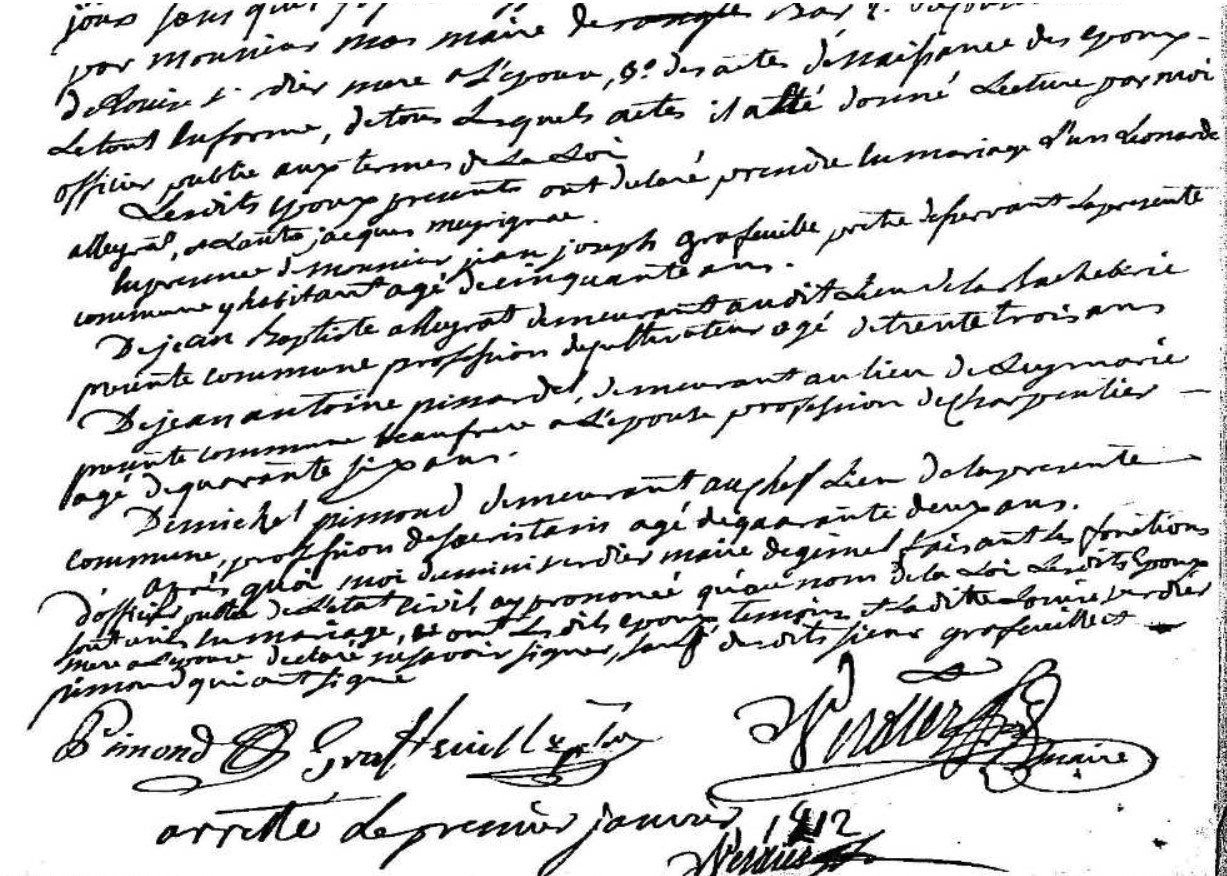 par monsieur mas maire de
de Louise verdier mere a L'epouse, 3° des actes de naissance des epoux
Le tout En forme, de tous Lesquels actes il a été donné Lecture par moi
officier public aux termes de La Loi
Lesdits epoux presents ont declaré prendre En mariage L'un Leonarde
allegrat, et L'autre jacques meyrignac.
En presence de monsieur jean joseph grafeuille prêtre deservant La presente
commune y habitant agé de cinquante ans.
De jean Baptiste allegrat demeurant audit Lieu de la
presente commune profession de cultivateur agé de trente trois ans
De jean antoine pissardel, demeurant au lieu de Leymarie
presente commune beaufrere a L'epouse profession de charpentier
agé de quarante six ans.
De michel pimond demeurant au chef Lieu de la presente
commune, profession de sacristain agé de quarante deux ans.
après quoi moi verdier maire de gimel faisant Les fonctions
d'officier public de L'etat civil, ay prononcé qu'au nom de la Loi Lesdits Epoux
sont unis En mariage, et ont Lesdits epoux temoins et Ladite Louise verdier
mere a L'epouse declaré ne savoir signer, sauf desdits sieurs grafeuille et
pimond qui ont signé
Pimond Graffeuille Verdier
maire
arretté Le premier janvier 1812
Verdier